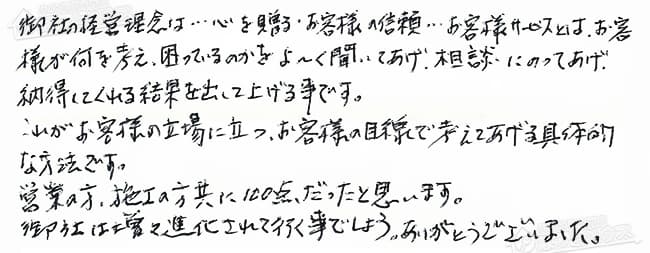 御社の経営理念は…心を贈る・お客様の信頼…お客様サービスとは、お客
様が何を考え、困っているのかをよ〜く聞いてあげ、相談にのってあげ、
納得してくれる結果を出して上げる事です。
これがお客様の立場に立つ、お客様の目線で考えてあげる具体的
な方法です。
営業の方、施工の方共に100点、だったと思います。
御社は増々進化されて行く事でしょう。ありがとうございました。